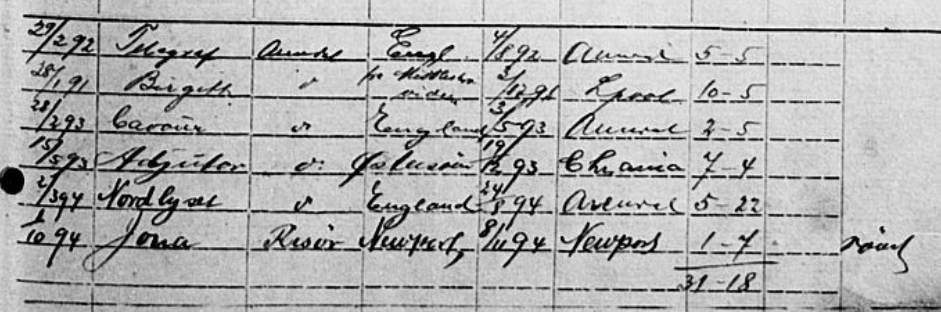 29/2 92 Telegraf Arendal Engl 4/8 92 Arendal 5-5
28/1 91 Birgith d 2/12 91 Lpool 10-5
28/2 93 Cavour d England 3/5 93 Arendal 2-5
15/5 93 Adjutor d. 19/12 93 Chrania 7-4
2/3 94 Nordlyset d England 24/8 94 Arendal 5-22
1/10 94 Jona Risör Newport, 8/11 94 Newport 1-7
31-18